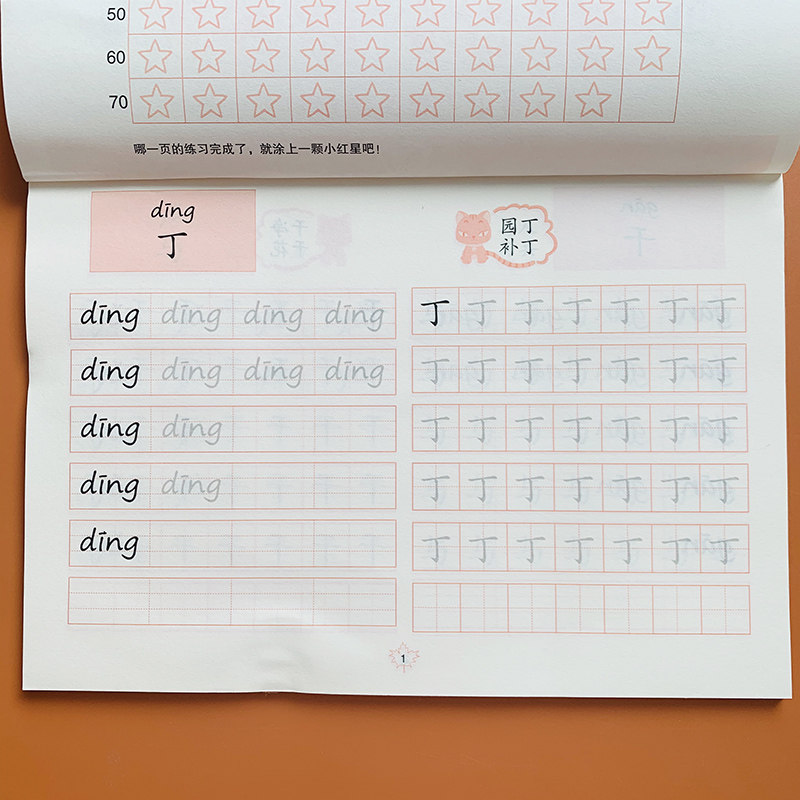 50
60
70
哪一页的练习完成了，就涂上一颗小红星吧！
dīng
丁
园丁
补丁
dīng dīng dīng dīng
dīng dīng dīng dīng
dīng dīng
dīng dīng
dīng
丁 丁 丁 丁 丁 丁 丁
丁 丁 丁 丁 丁 丁 丁
丁 丁 丁 丁 丁 丁 丁
丁 丁 丁 丁 丁 丁 丁
丁 丁 丁 丁 丁 丁 丁
1